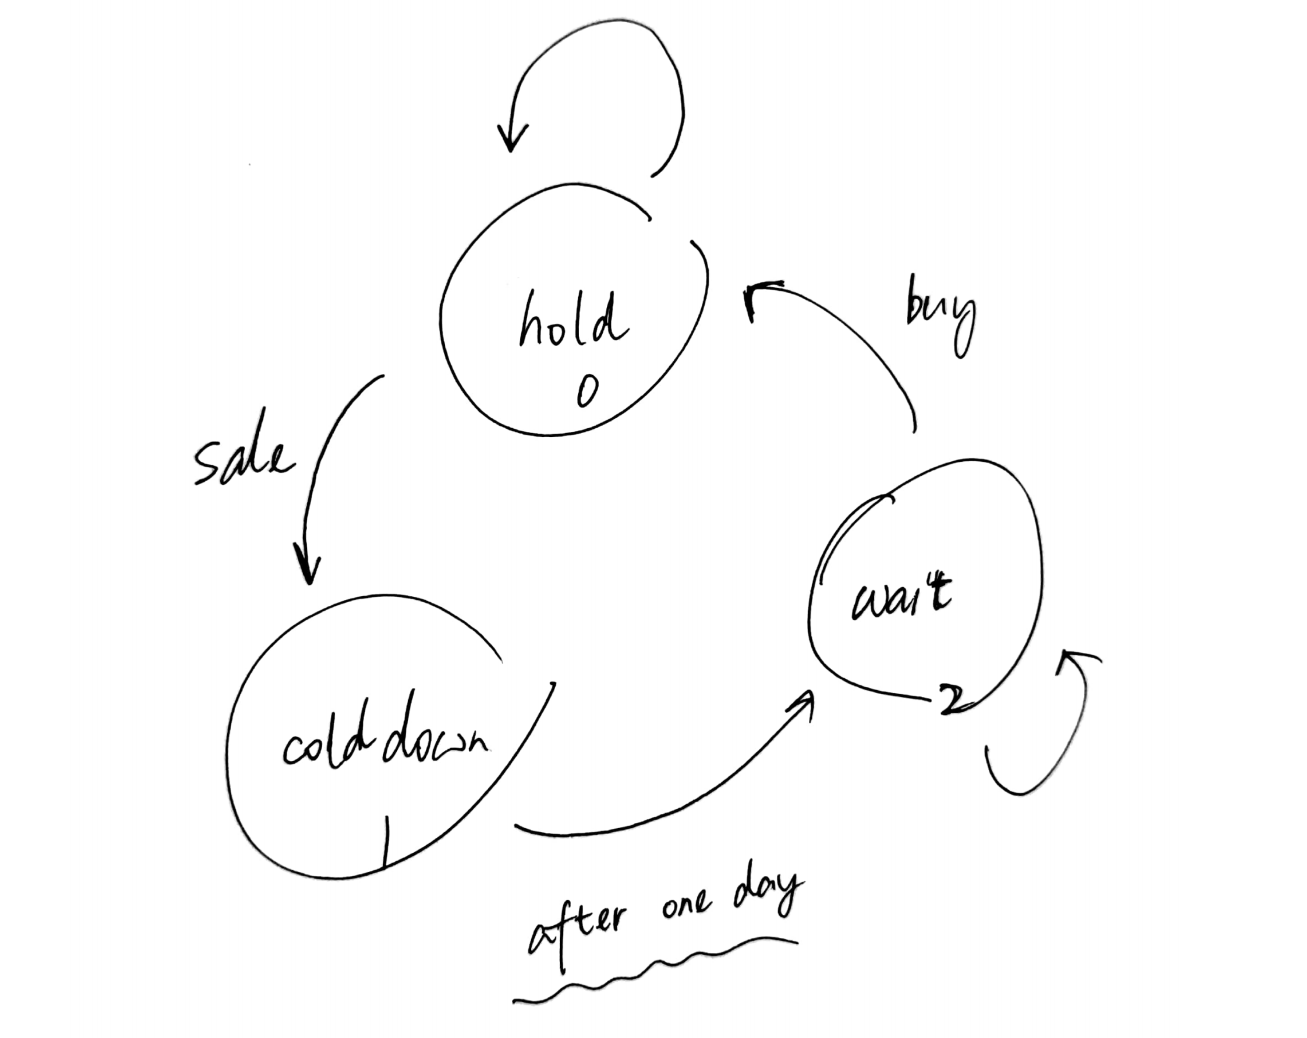 hold
0
buy
sale
wait
2
cold down
1
after one day